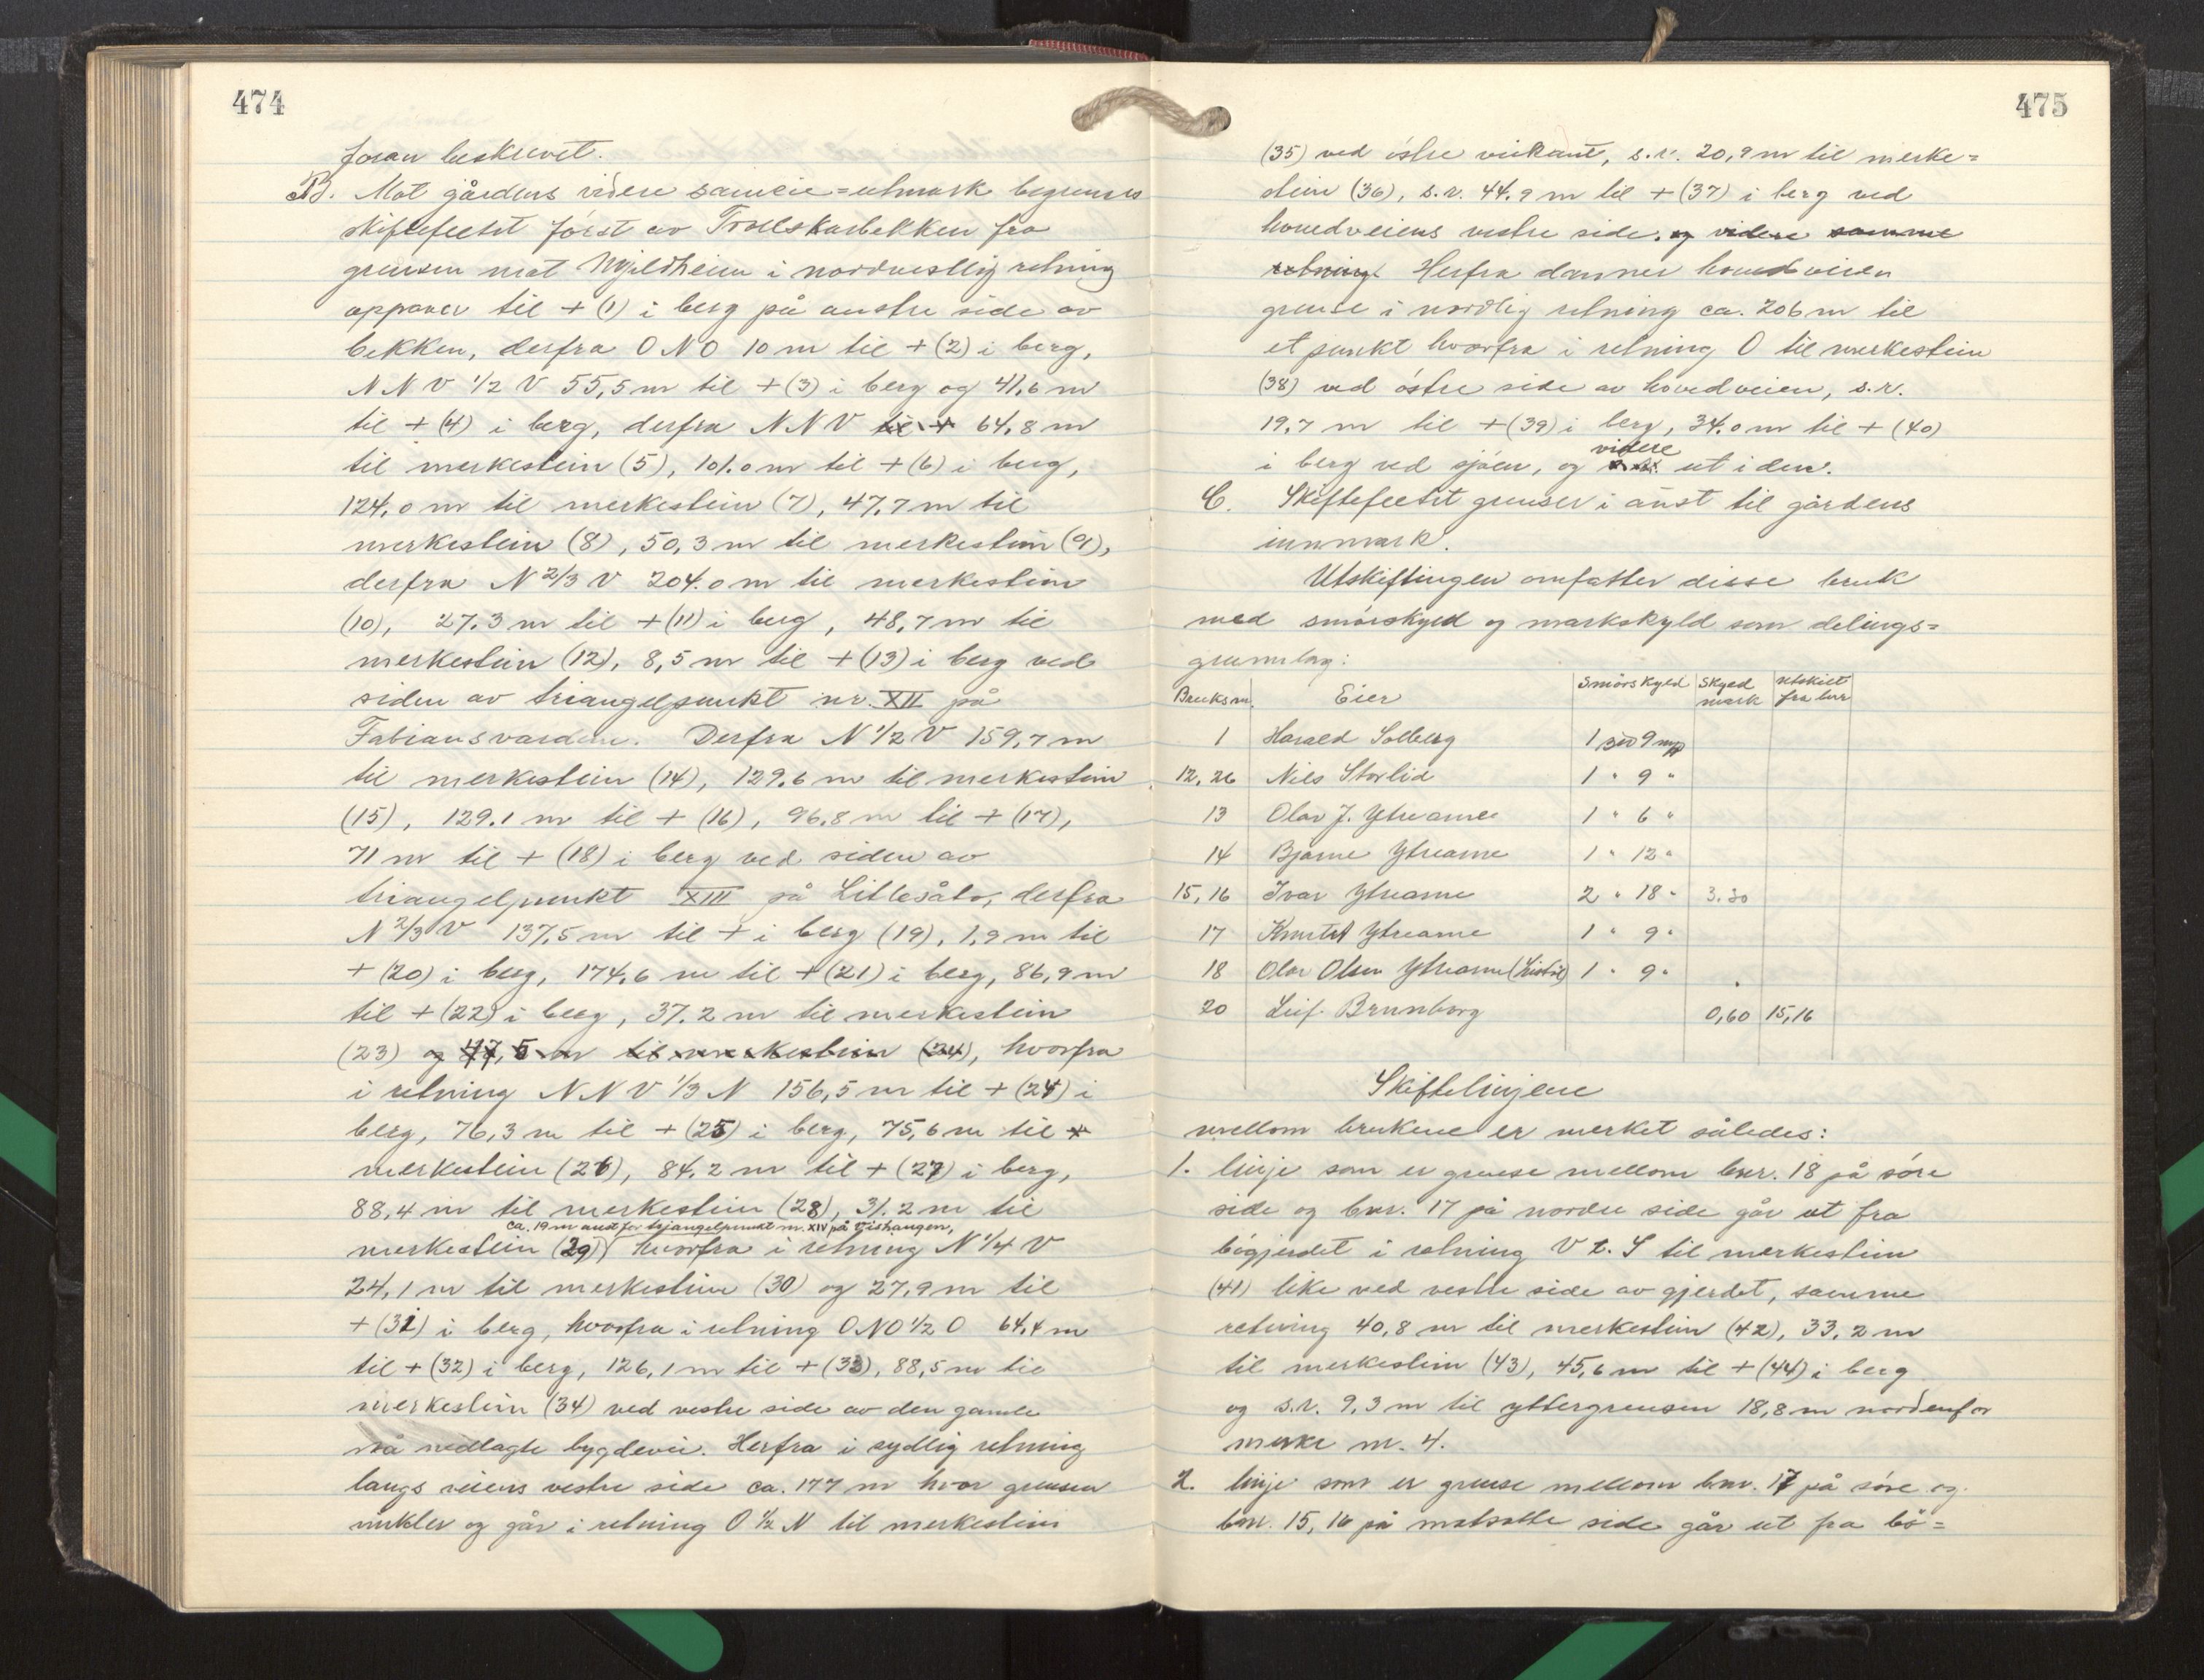 474
foran beskrevet.
B. Mot gårdens videre sameie=utmark begrenses
skiftefeltet först av Trollskarbekken fra
grensen mot Mjeldheim i nordvestlig retning
oppover til + (1) i berg på austre side av
bekken, derfra O N O 10 m til + (2) i berg,
N N V 1/2 V 55,5 m til + (3) i berg og 41,6 m
til + (4) i berg, derfra N N V til + 64,8 m
til merkestein (5), 101.0 m til + (6) i berg,
124.0 m til merkestein (7), 47.7 m til
merkestein (8), 50,3 m til merkestein (9),
derfra N 2/3 V 204.0 m til merkestein
(10), 27.3 m til + (11) i berg, 48,7 m til
merkestein (12), 8,5 m til + (13) i berg ved
siden av triangelpunkt nr. XII på
Fabiansvarden. Derfra N 1/2 V 159,7 m
til merkestein (14), 129.6 m til merkestein
(15), 129.1 m til + (16), 96.8 m til + (17),
71 m til + (18) i berg ved siden av
triangelpunkt XIII på Litlesåto, derfra
N 2/3 V 137,5 m til + i berg (19), 1,9 m til
+ (20) i berg, 174,6 m til + (21) i berg, 86,9 m
til + (22) i berg, 37.2 m til merkestein
(23) og 47,5 m til merkestein (24), hvorfra
i retning N N V 1/3 N 156,5 m til + (24) i
berg, 76,3 m til + (25) i berg, 75,6 m til +
merkestein (26), 84.2 m til + (27) i berg,
88,4 m til merkestein (28), 31.2 m til
ca. 19 m aust for triangelpunkt nr. XIV på Vishaugen,
merkestein (29) hvorfra i retning N 1/4 V
24,1 m til merkestein (30) og 27,9 m til
+ (31) i berg, hvorfra i retning O N O 1/2 O 64,4 m
til + (32) i berg, 126,1 m til + (33), 88,5 m til
merkestein (34) ved vestre side av den gamle
nå nedlagte bygdevei. Herfra i sydlig retning
langs veiens vestre side ca. 177 m hvor grensen
vinkler og går i retning O 1/2 N til merkestein
475
(35) ved östre veikant, s.r. 20,9 m til merke=
stein (36), s.r. 44.9 m til + (37) i berg ved
hovedveiens vestre side. og videre samme
retning. Herfra danner hovedveien
grense i nordlig retning ca. 206 m til
et punkt hvorfra i retning O til merkestein
(38) ved östre side av hovedveien, s.r.
19.7 m til + (39) i berg, 34.0 m til + (40)
videre
i berg ved sjöen, og s.r. ut i den.
C. Skiftefeltet grenser i aust til gårdens
innmark.
Utskiftingen omfatter disse bruk
med smörskyld og markskyld som delings=
grunnlag:
Bruksnr. Eier Smörskyld Skyld mark Utskilt fra bnr
1 Harald Solberg 1 9
12, 26 Nils Storlid 1 " 9 "
13 Olav J. Ytrearne 1 " 6 "
14 Bjarne Ytrearne 1 " 12 "
15, 16 Ivar Ytrearne 2 " 18 " 3.30
17 Knut Ytrearne 1 " 9 "
18 Olav Olsen Ytrearne 1 " 9 "
20 Leif Brunborg 0,60 15,16
Skiftelinjene
mellom brukene er merket således:
1. linje som er grense mellom bnr. 18 på söre
side og bnr. 17 på nordre side går ut fra
bögjerdet i retning V t. S til merkestein
(41) like ved vestre side av gjerdet, samme
retning 40,8 m til merkestein (42), 33,2 m
til merkestein (43), 45,6 m til + (44) i berg
og s.r. 9,3 m til yttergrensen 18,8 m nordenfor
merke nr. 4.
2. linje som er grense mellom bnr. 17 på söre og
bnr. 15, 16 på motsatte side går ut fra bö=